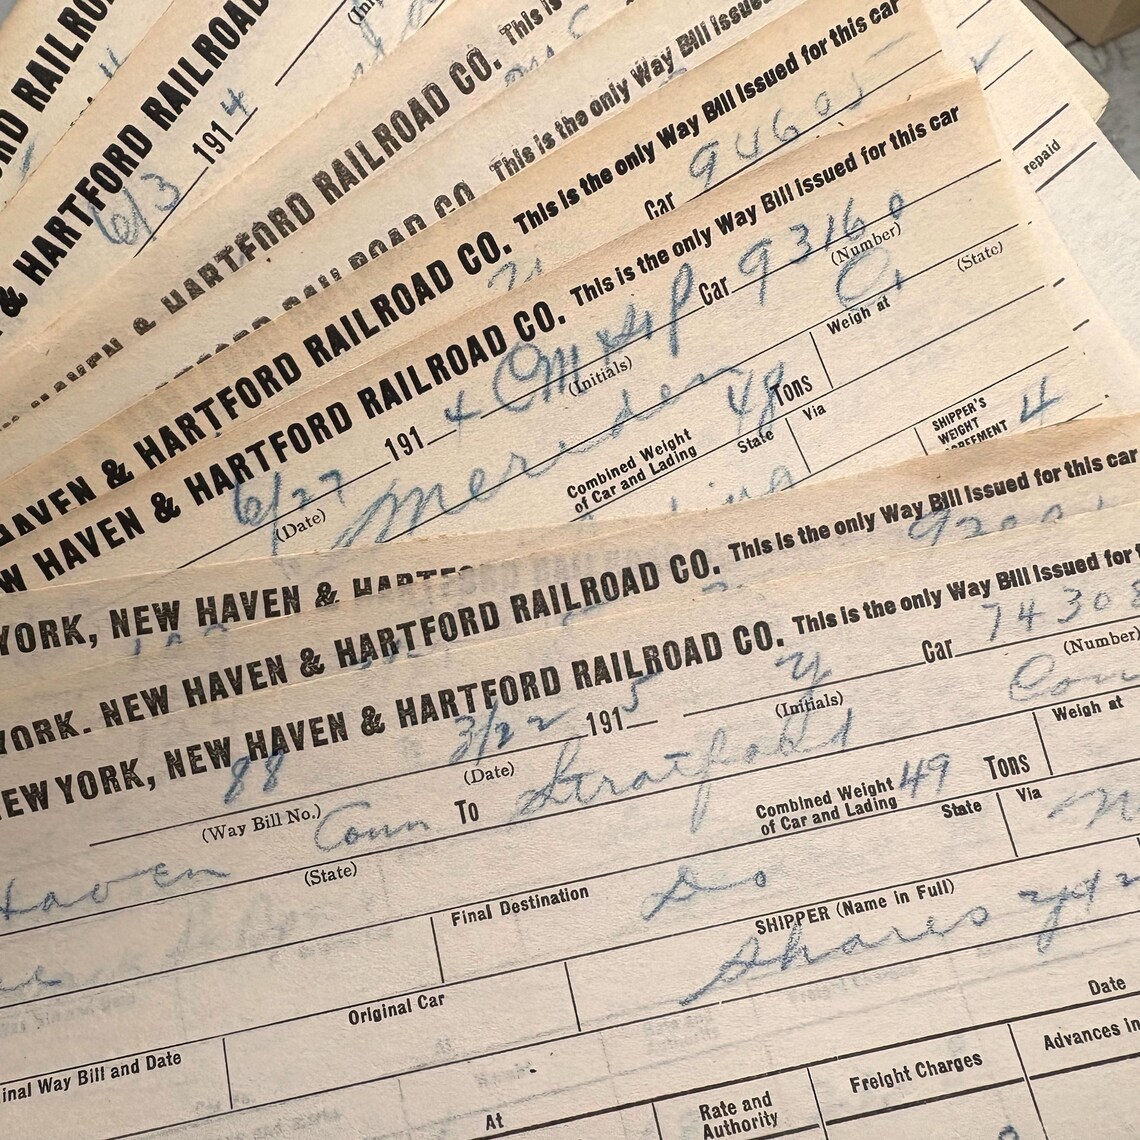 RD RAILRO
& HARTFORD RAILROAD
6/3 1914
HAVEN & HARTFORD RAILROAD CO. This is
RAILROAD CO. This is the only Way Bill Issued
HAVEN & HARTFORD RAILROAD CO. This is the only Way Bill Issued for this car
Car
repaid
W HAVEN & HARTFORD RAILROAD CO. This is the only Way Bill Issued for this car
6/27 1914 Car 93160
(Date) (Initials) (Number)
Meriden (State)
Combined Weight of Car and Lading 48 Tons Weigh at
State Via
SHIPPER'S WEIGHT AGREEMENT 4
YORK, NEW HAVEN & HARTFORD RAILROAD CO. This is the only Way Bill Issued for this car
YORK, NEW HAVEN & HARTFORD RAILROAD CO. This is the only Way Bill Issued for t
NEW YORK, NEW HAVEN & HARTFORD RAILROAD CO.
88 3/22 1915 Y Car 74308
(Way Bill No.) (Date) (Initials) (Number)
Haven Conn To Stratford Conn
(State) Combined Weight of Car and Lading 49 Tons Weigh at
State Via
Final Destination Do
SHIPPER (Name in Full)
Original Car
inal Way Bill and Date
Date
At Rate and Authority Freight Charges Advances in